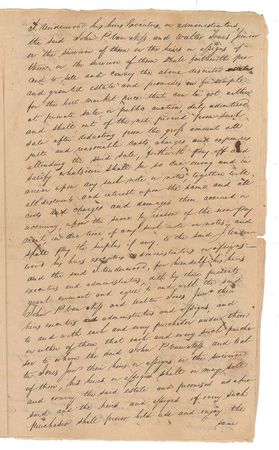 Herdenwood his heirs Executors or administrators
the said John P. Van Ness and Walter Jones Junior
or the survivor of them or the heirs or assigns of
them, or the survivor of them shall forthwith pro-
ceed to sell and convey the above described
and granted estate and premises in fee simple
for the best market price that can be got either
at private sale or public auction duly advertised
and shall out of the net proceeds from such
sale after deducting from the gross amount all
just and reasonable costs charges and expenses
attending the said sale, forthwith pay off and
satisfy whatsoever shall be so due owing and in
arrear upon any such note or notes together with
all discounts and interest upon the same and all
costs charges and damages then accrued or
accruing upon the same by reason of the non pay-
ment in due time of any such note or notes, and
shall pay the surplus if any, to the said
his heirs executors administrators or assigns
and the said Herdenwood, for himself his heirs
executors and administrators, doth by these presents
grant covenant and agree to and with the said
John P. Van Ness and Walter Jones Junr their
heirs executors administrators and assigns and
to and with each and every purchaser under them
or either of them that each and every such purcha-
ser to whom the said John P. Van Ness and Wal-
ter Jones Junr their heirs or assigns or the survivor
of them, his heirs or assigns shall or may sell
and convey the said estate and premises as afore
said and the heirs and assigns of every such
purchaser shall forever hold use and enjoy the
same